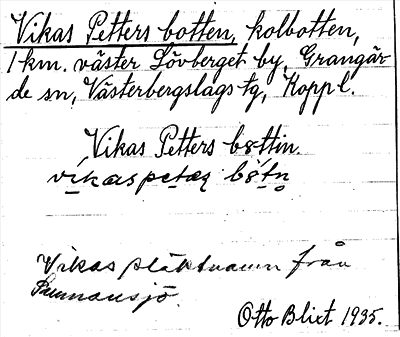 Vikas Petters botten, kolbotten,
1 km. väster Lövberget by, Grangär-
de sn, Västerbergslags tg, Kopp l.
Vikas Petters bottin.
vikaspetaş
Vikas släktnamn från
Otto Blixt 1935.